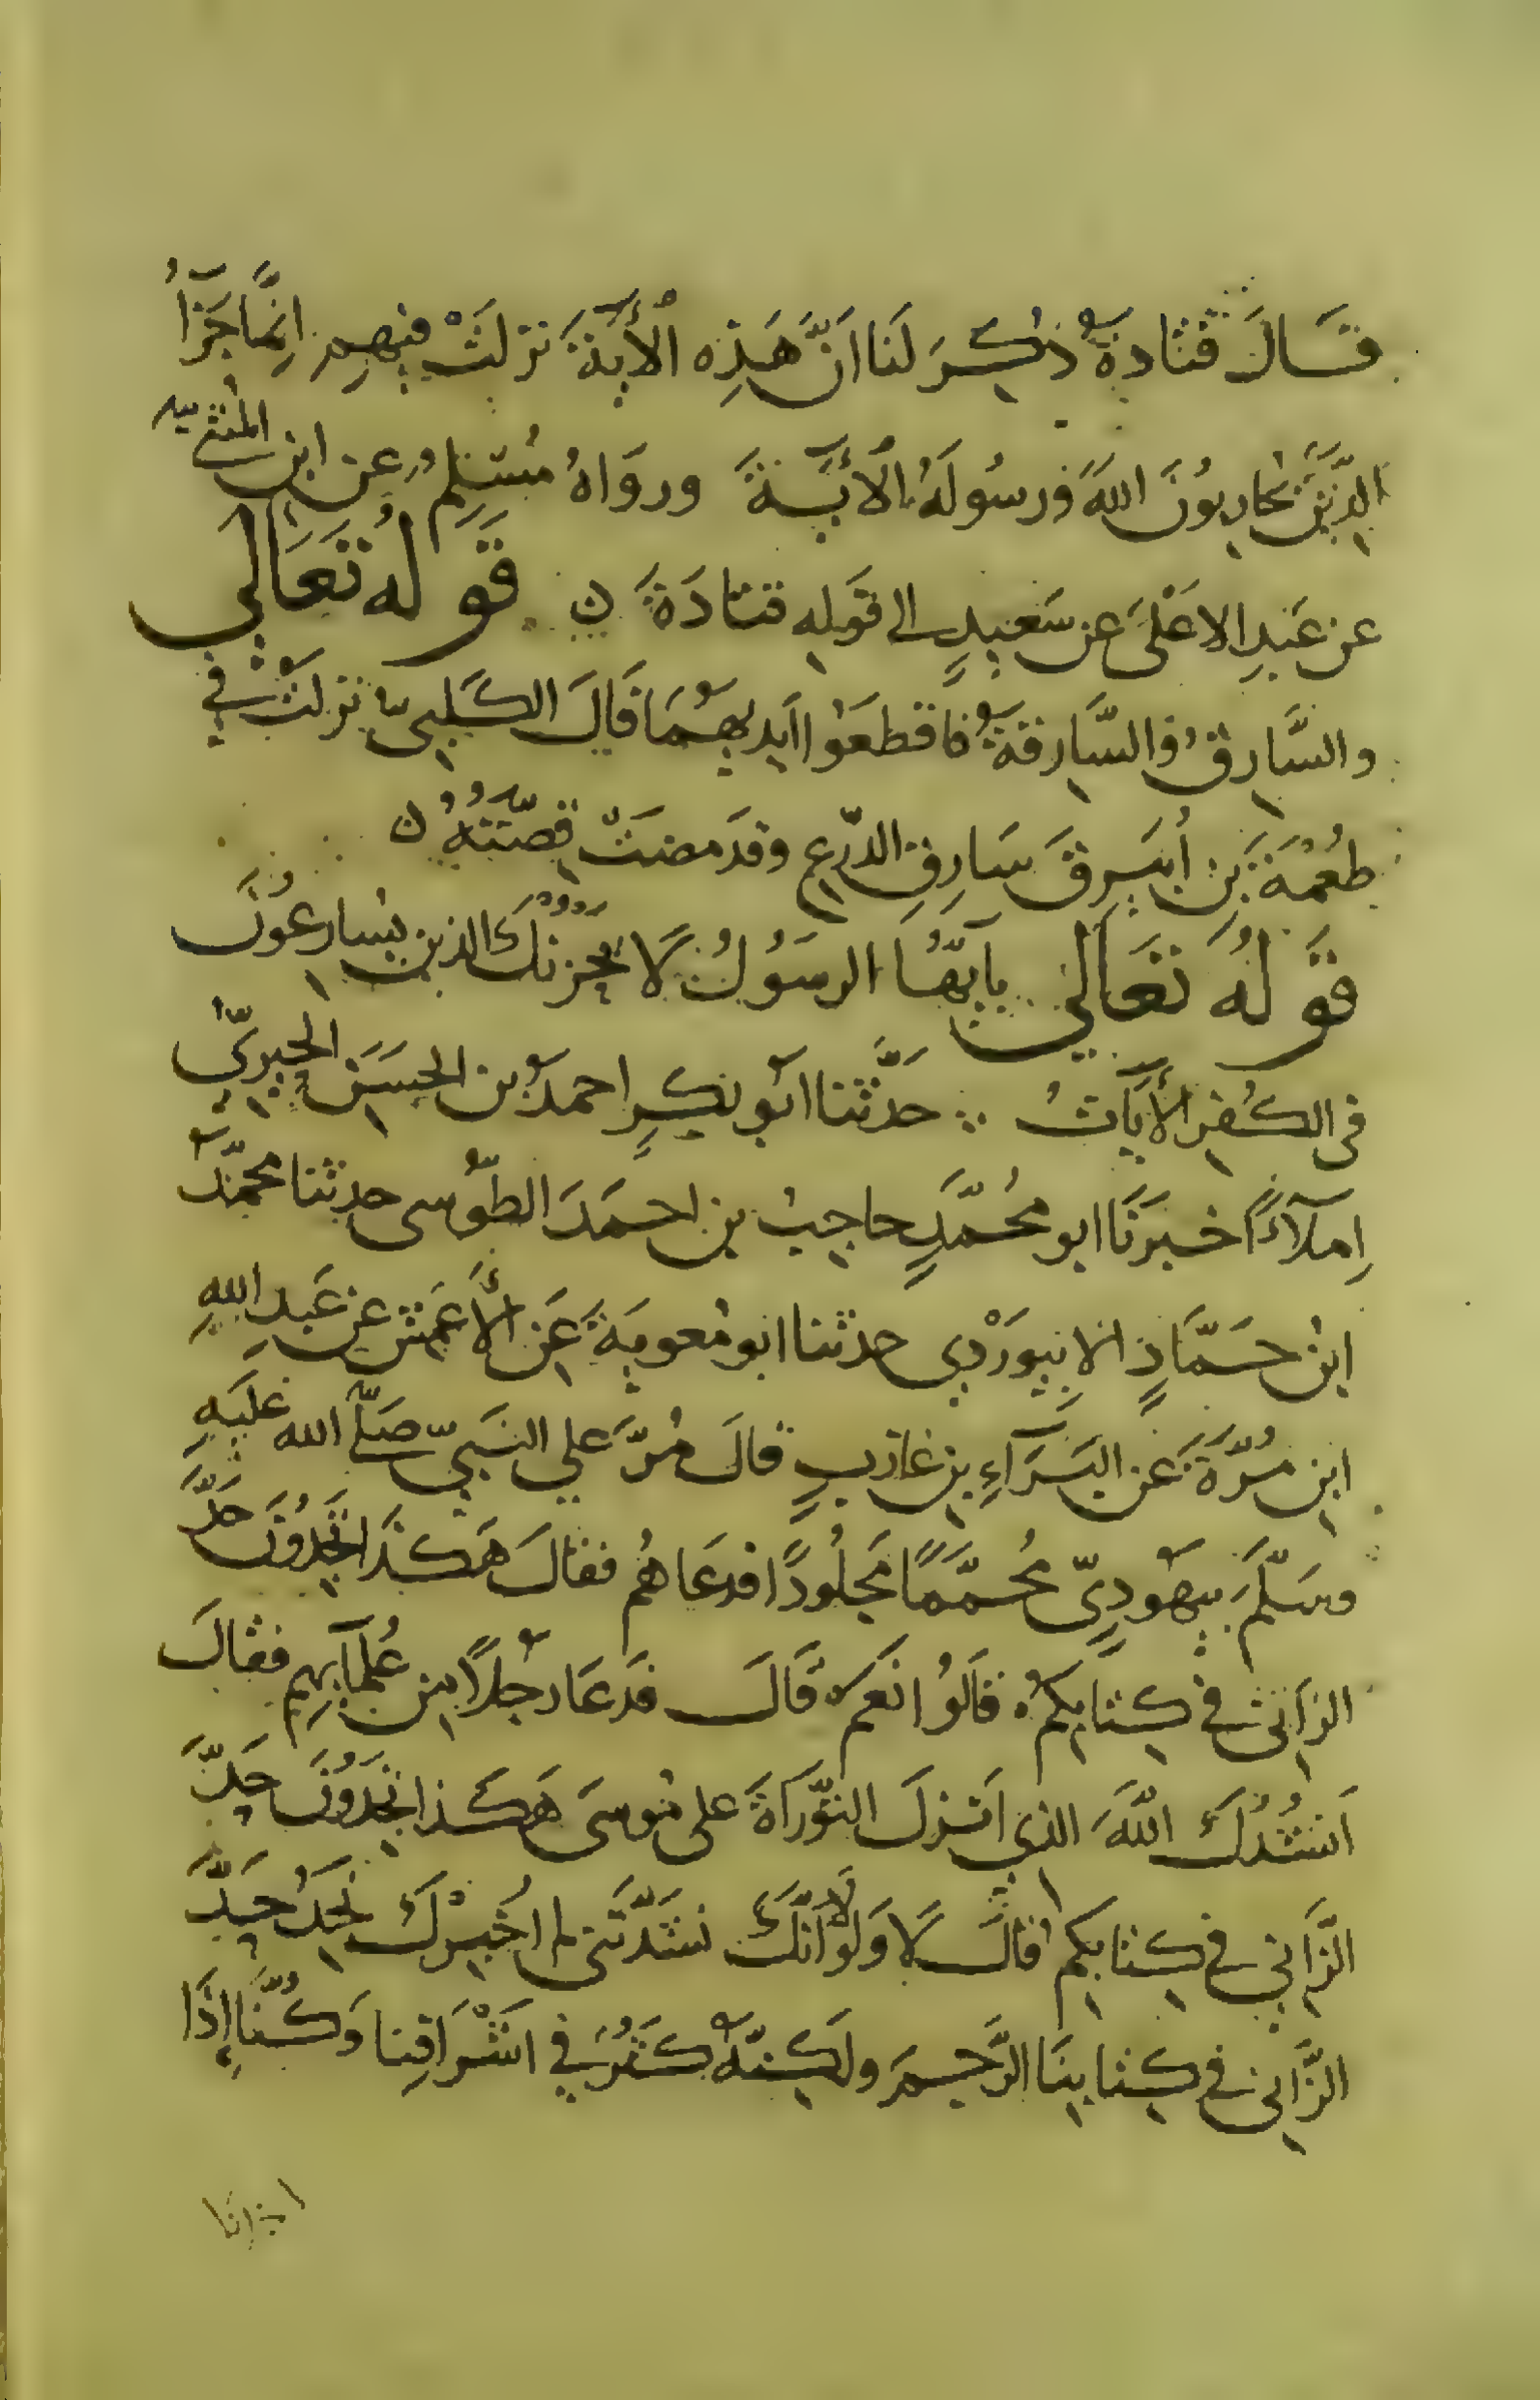 قَالَ قَتَادَةُ ذُكِرَ لَنَا اَنَّ هَذِهِ الْأَيَةَ نَزَلَتْ فِيهِمْ اِنَّمَا جَزَآُ
الَّذِيْنَ يُحَارِبُوْنَ اللهَ وَرَسُولَهُ الْأَيَةَ وَرَوَاهُ مُسْلِمٌ عَنِ ابْنِ الْمُثَنَّى
عن عَبْدِ الاعْلَى عن سَعِيدٍ الى قَوْلِهِ قتادَةَ ن قَوْلُهُ تَعَالَي
والسَّارِقُ وَالسَّارِقَةُ فَاقْطَعُوْا اَيْدِيَهُمَا قَالَ الكَلْبِىُّ نَزَلَتْ فِي
طُعْمَةَ بْنِ أُبَيْرِقَ سَارِقِ الدِّرْعِ وقد مضَتْ قِصَّتُهُ ن
قَوْلُهُ تَعَالَي يا اَيُّهَا الرسُوْلُ لَا يَحْزُنْكَ الذين يُسَارِعُوْنَ
فى الكُفْرِ الأَيَاتُ ∴ حَدَّثَنَا اَبُو بَكْرٍ احمدُ بن الحَسَنِ الحِيرِيُّ
اِمْلَآءً اخْبَرَنَا ابو مُحَمَّدٍ حاجِبُ بن احمَدَ الطُّوسى حدثنا محمَّدُ
ابْنُ حَمَّادٍ الابِيوَرْدِي حدثنا ابو مُعوِيَةَ عَنِ الْأَعْمَشِ عن عَبْدِ اللهِ
ابنِ مُرَّةَ عَنِ البَرَآءِ بنِ عَازِبٍ قالَ مُرَّ علي النَبِيِّ صَلَّى الله عَلَيْهِ
وسَلَّمَ بِيَهُودِىٍّ مُحَمَّمًا مَجْلُودًا فدَعَاهُمْ فقالَ هَكَذَا تَجِدُوْنَ حَدَّ
الزَانى في كِتَابِكُمْ قَالُوْا نَعَمْ قَالَ فَدَعَا رَجُلًا مِنْ عُلَمَآيِهِمْ فقَالَ
اَنْشُدُكَ اللَّهَ الذي اَنْزَلَ التَّوْرَاةَ على مُوسَى هَكَذَا تَجِدُوْنَ حَدَّ
الزَّانِي في كِتَابِكُمْ قالَ لَا وَلَوْلَا اَنَّكَ نَشَدْتَنِى لم اُخْبِرْكَ نَجِدُ حَدَّ
الزَّانى في كِتَابِنَا الرَّجْمَ ولَكِنَّهُ كَثُرَ في اَشْرَافِنا وَكُنَّا إِذَا
اخذنا